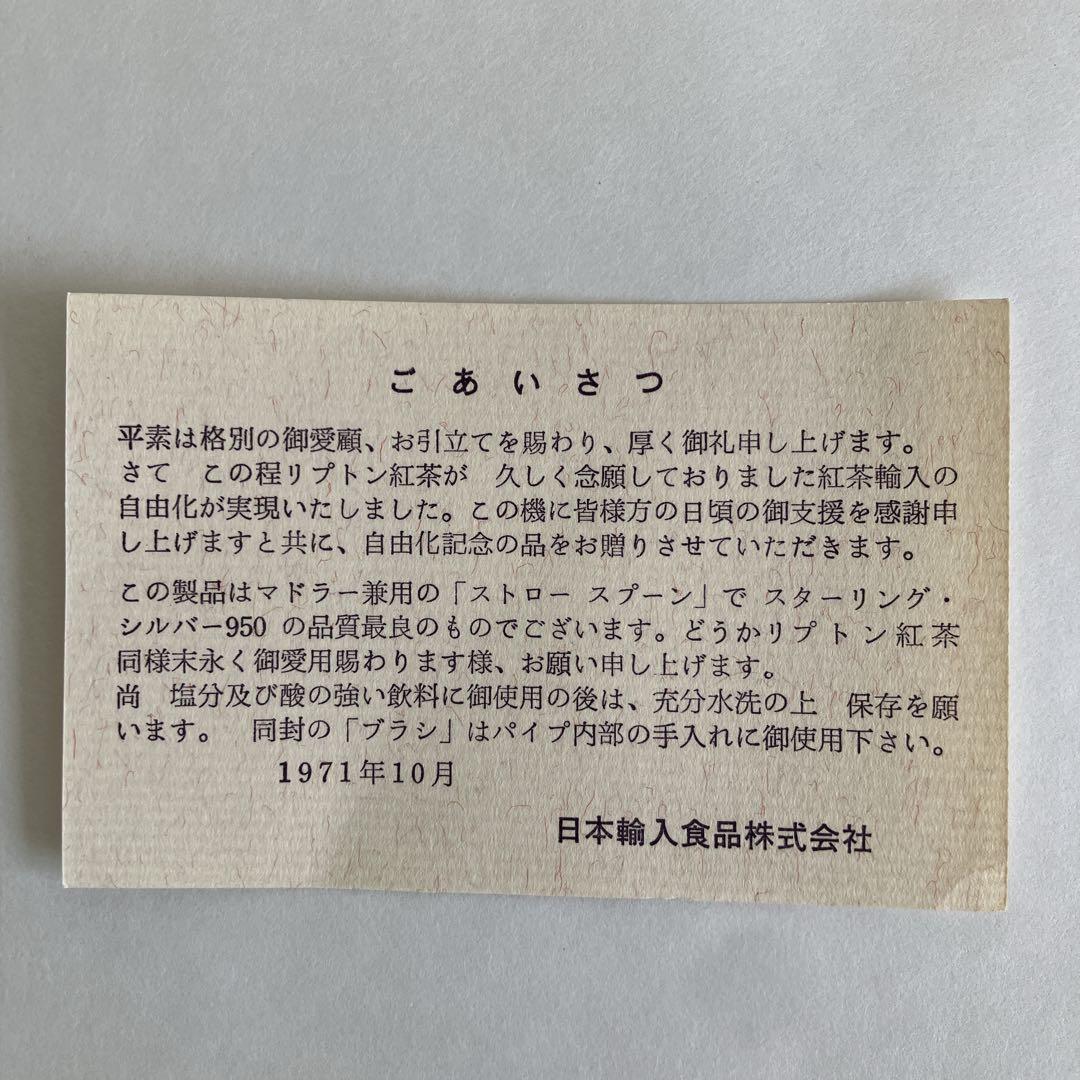 ごあいさつ
平素は格別の御愛顧、お引立てを賜わり、厚く御礼申し上げます。
さて　この程リプトン紅茶が　久しく念願しておりました紅茶輸入の
自由化が実現いたしました。この機に皆様方の日頃の御支援を感謝申
し上げますと共に、自由化記念の品をお贈りさせていただきます。
この製品はマドラー兼用の「ストロー スプーン」で スターリング・
シルバー950 の品質最良のものでございます。どうかリプトン紅茶
同様末永く御愛用賜わります様、お願い申し上げます。
尚　塩分及び酸の強い飲料に御使用の後は、充分水洗の上　保存を願
います。　同封の「ブラシ」はパイプ内部の手入れに御使用下さい。
1971年10月
日本輸入食品株式会社